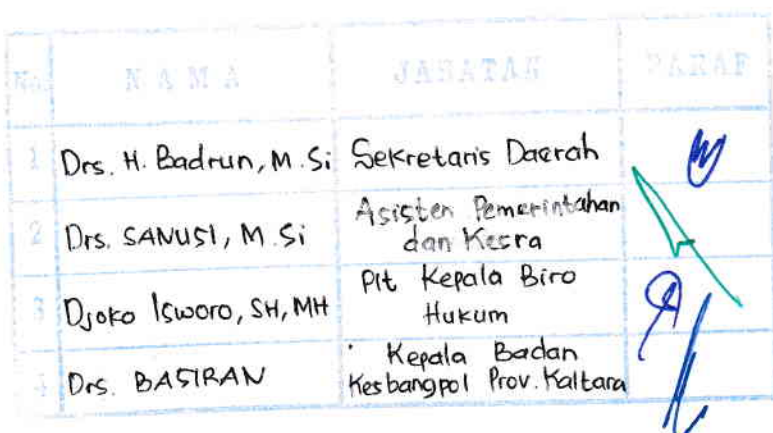 No. NAMA JABATAN PARAF
1 Drs. H. Badrun, M.Si Sekretaris Daerah
2 Drs. SANUSI, M.Si Asisten Pemerintahan
dan Kesra
3 Djoko Isworo, SH, MH Plt Kepala Biro
Hukum
4 Drs. BASIRAN Kepala Badan
Kesbangpol Prov. Kaltara